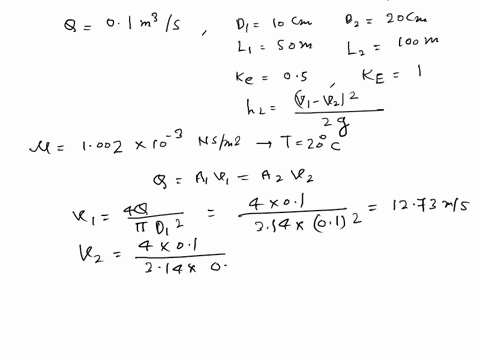 Q = 0.1 m³/s , D₁ = 10 cm D₂ = 20 cm
L₁ = 50m L₂ = 100 m
Ke = 0.5 , KE = 1
hL = (V₁ - V₂)² / 2g
M = 1.002 × 10⁻³ NS/m2 → T = 20°C
Q = A₁ V₁ = A₂ V₂
V₁ = 4Q / π D₁² = 4 × 0.1 / 3.14 × (0.1)2 = 12.73 m/s
V₂ = 4 × 0.1 / 3.14 × 0.